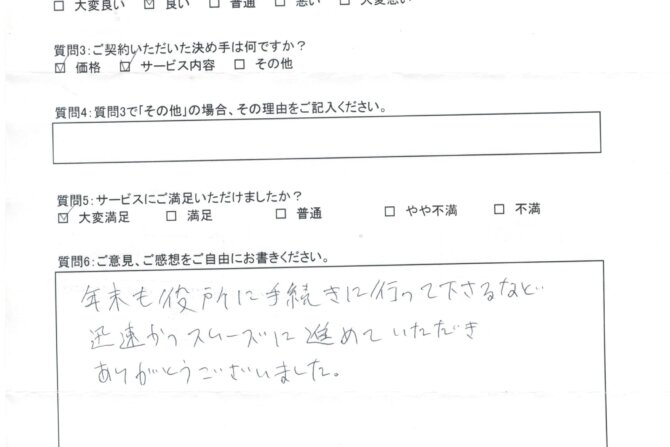 □ 大変良い ☑ 良い □ 普通 □ 悪い □ 大変悪い
質問3:ご契約いただいた決め手は何ですか?
☑ 価格 ☑ サービス内容 □ その他
質問4:質問3で「その他」の場合、その理由をご記入ください。
質問5:サービスにご満足いただけましたか?
☑ 大変満足 □ 満足 □ 普通 □ やや不満 □ 不満
質問6:ご意見、ご感想をご自由にお書きください。
年末も役所に手続きに行って下さるなど
迅速かつスムーズに進めていただき
ありがとうございました。